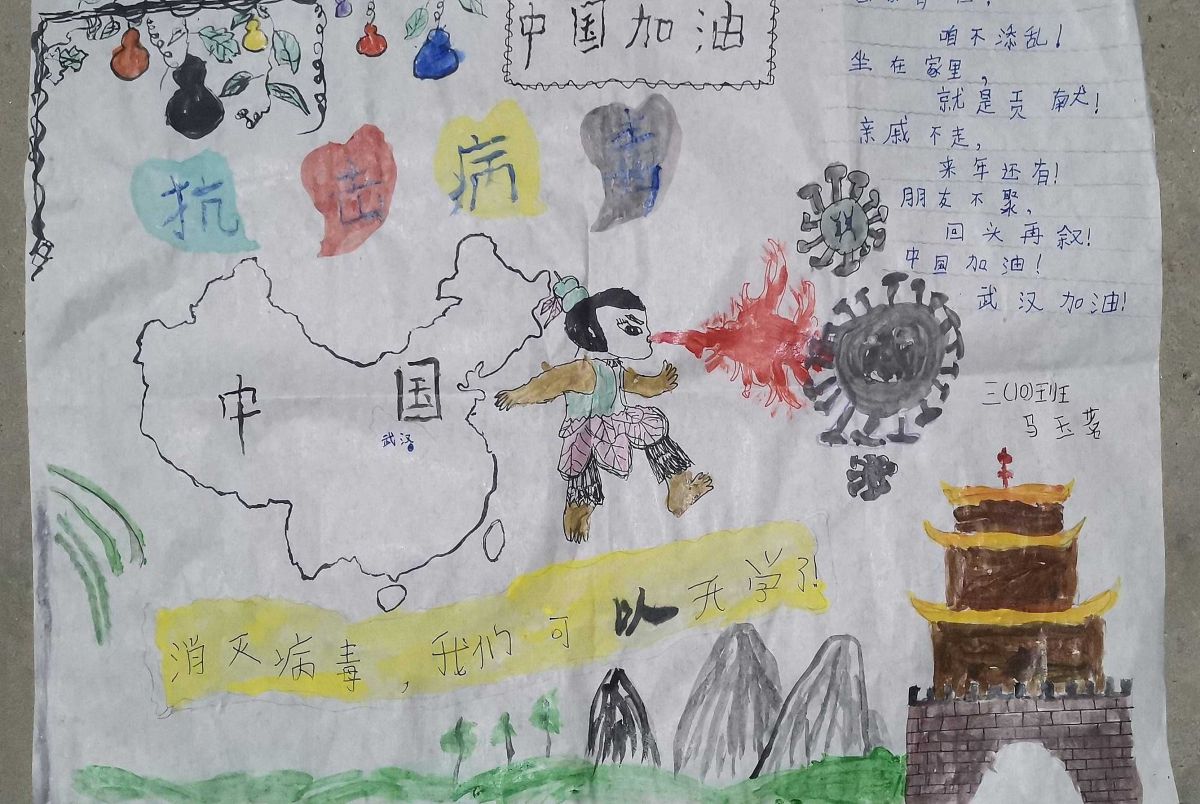 中国加油
咱不添乱!
坐在家里,
就是贡献!
亲戚不走,
来年还有!
朋友不聚,
回头再叙!
中国加油!
武汉加油!
抗击病毒
三(10)班
马玉茗
中国
武汉
消灭病毒,我们可以开学了!